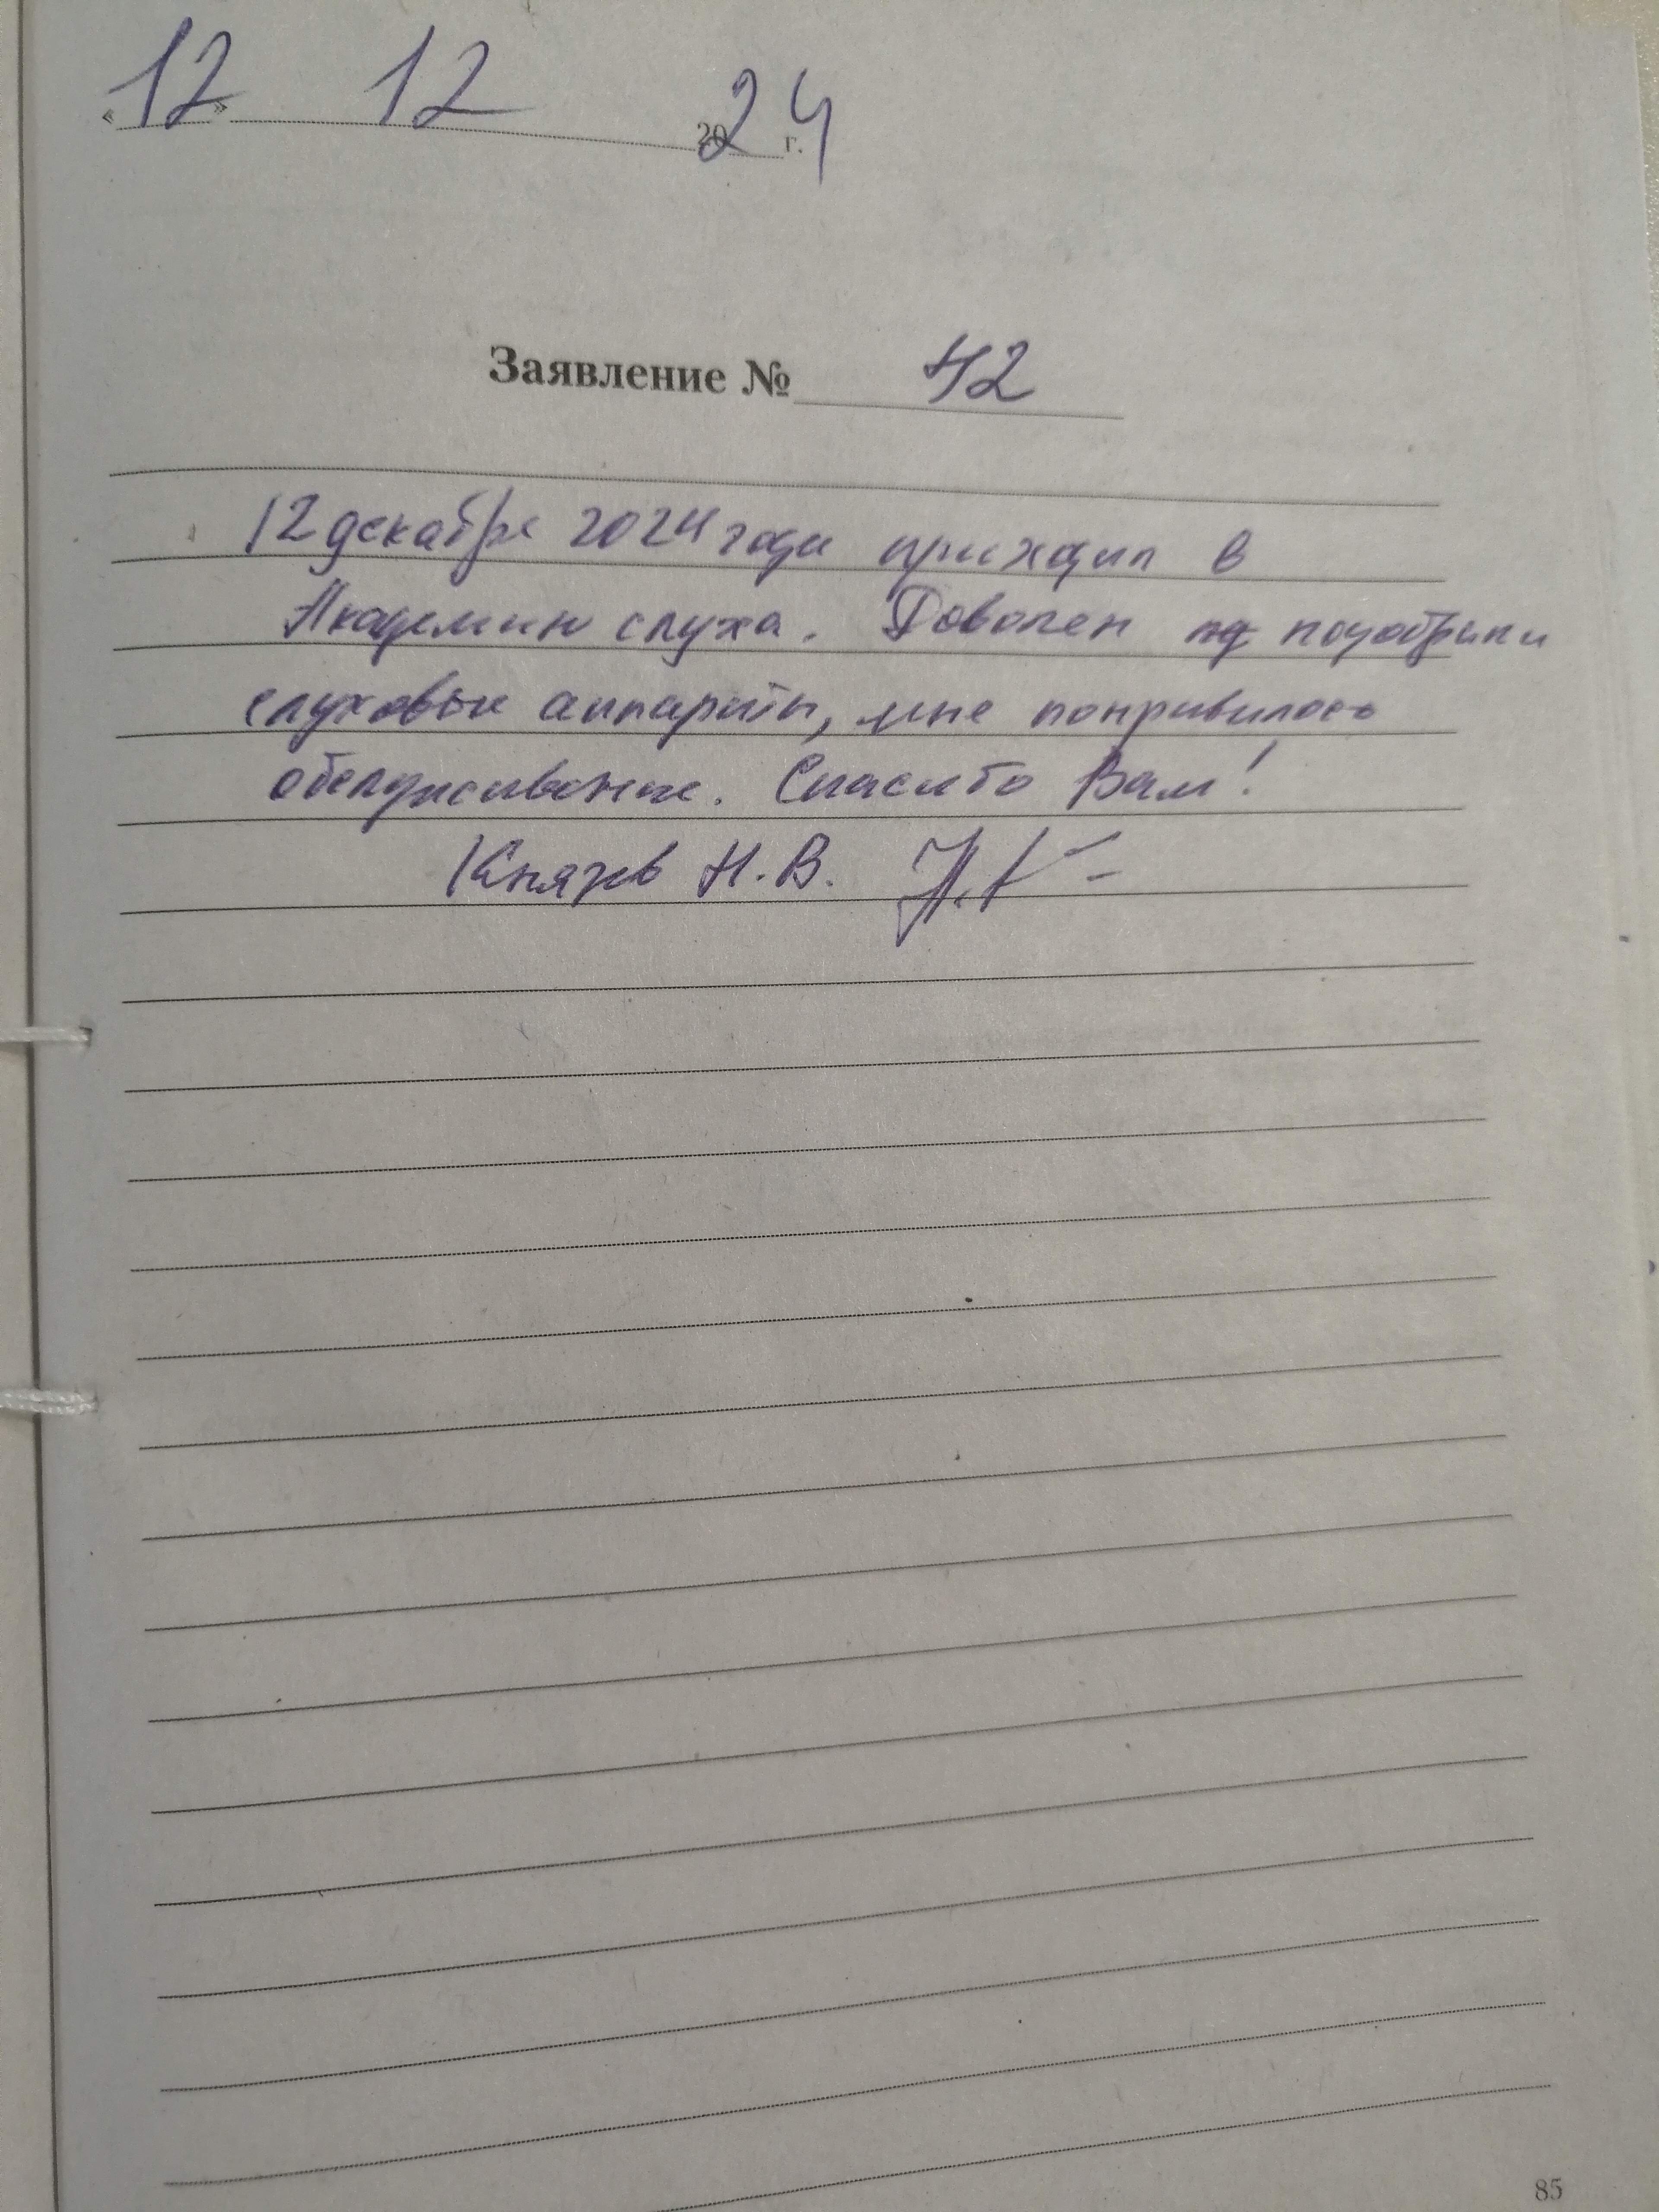 «12» 12 2024 г.
Заявление № 42
12 декабря 2024 года приходил в
Академию слуха. Доволен подобрали
слуховые аппараты, мне понравилось
обслуживание. Спасибо Вам!
Князев Н.В.
85